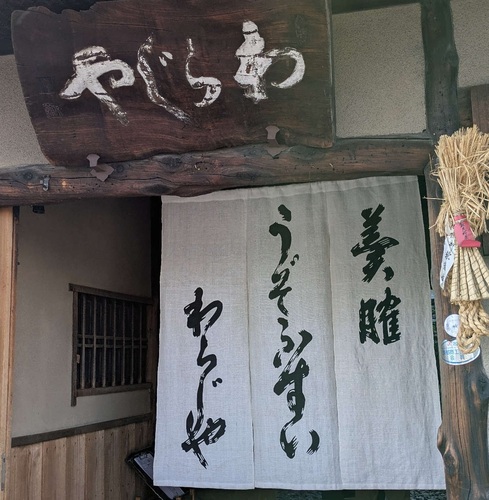 わらじや
羹臛
うぞふすい
わらじや